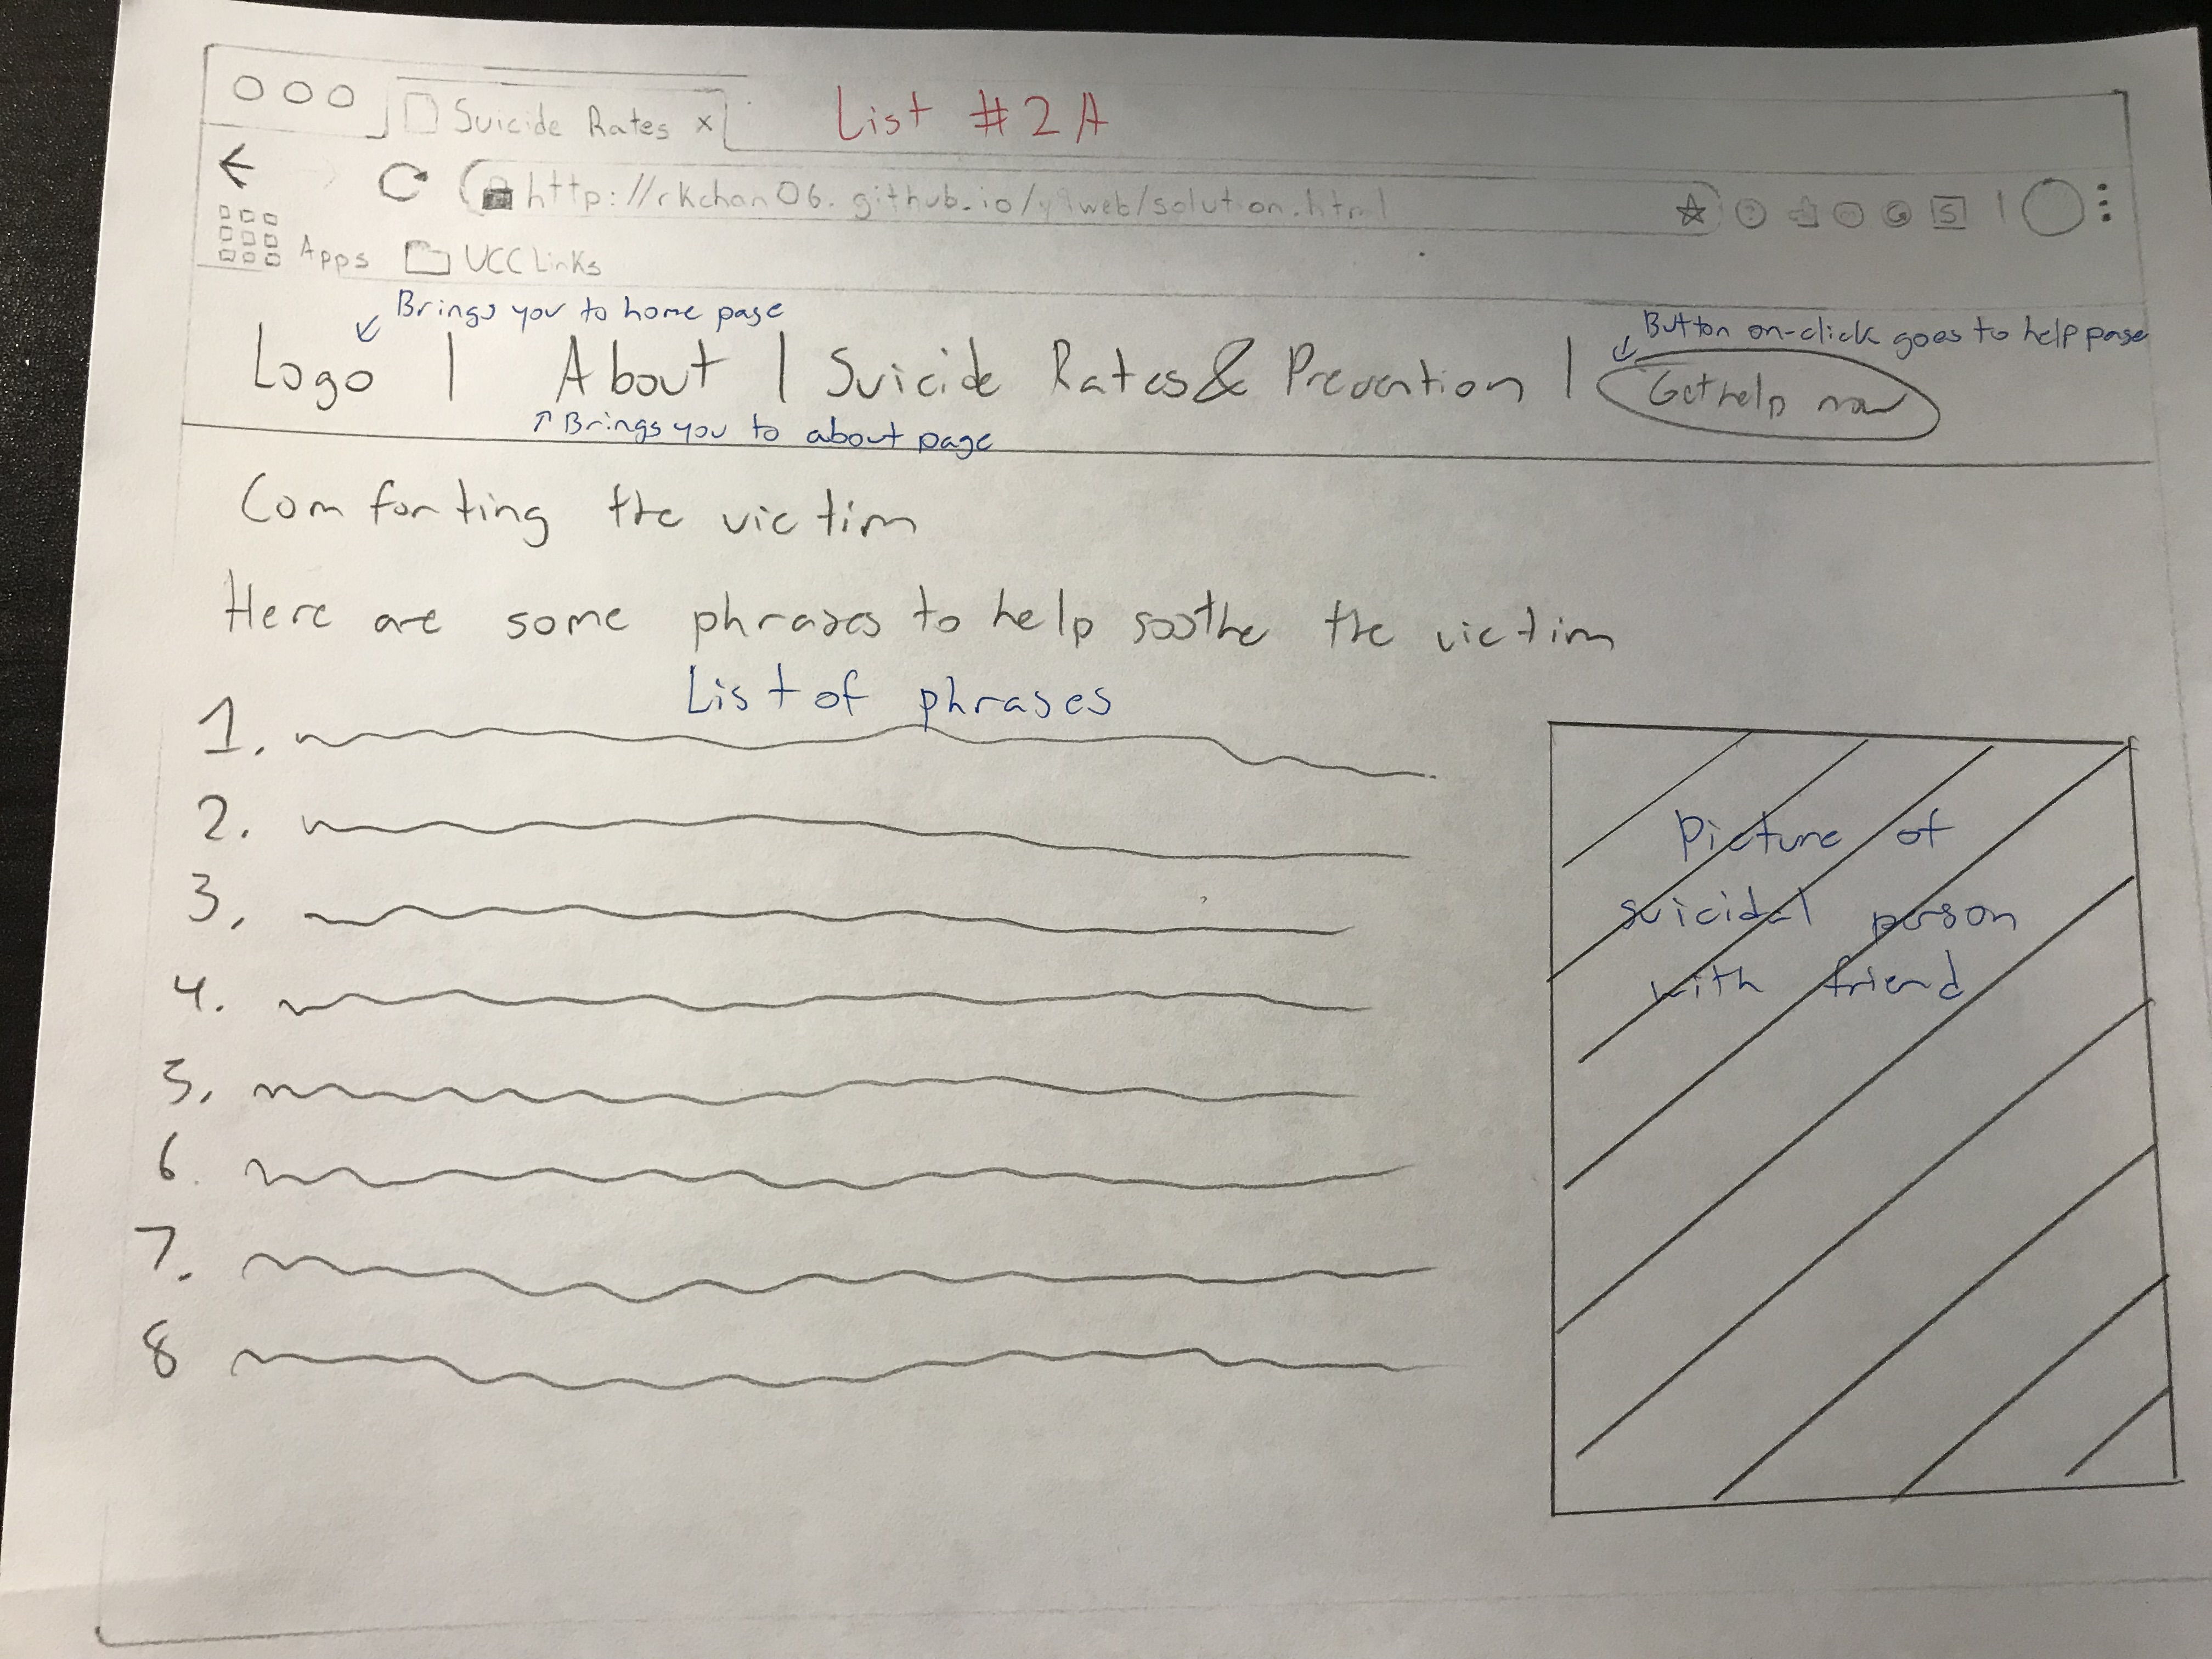 Suicide Rates x
List #2A
http://rkchan06.github.io/y9web/solution.html
S
Apps UCC Links
Brings you to home page
Button on-click goes to help page
Logo | About | Suicide Rates & Prevention | Get help now
Brings you to about page
Comforting the victim
Here are some phrases to help soothe the victim
List of phrases
1.
2.
3,
4.
5,
6.
7.
8
Picture of
suicidal person
with friend